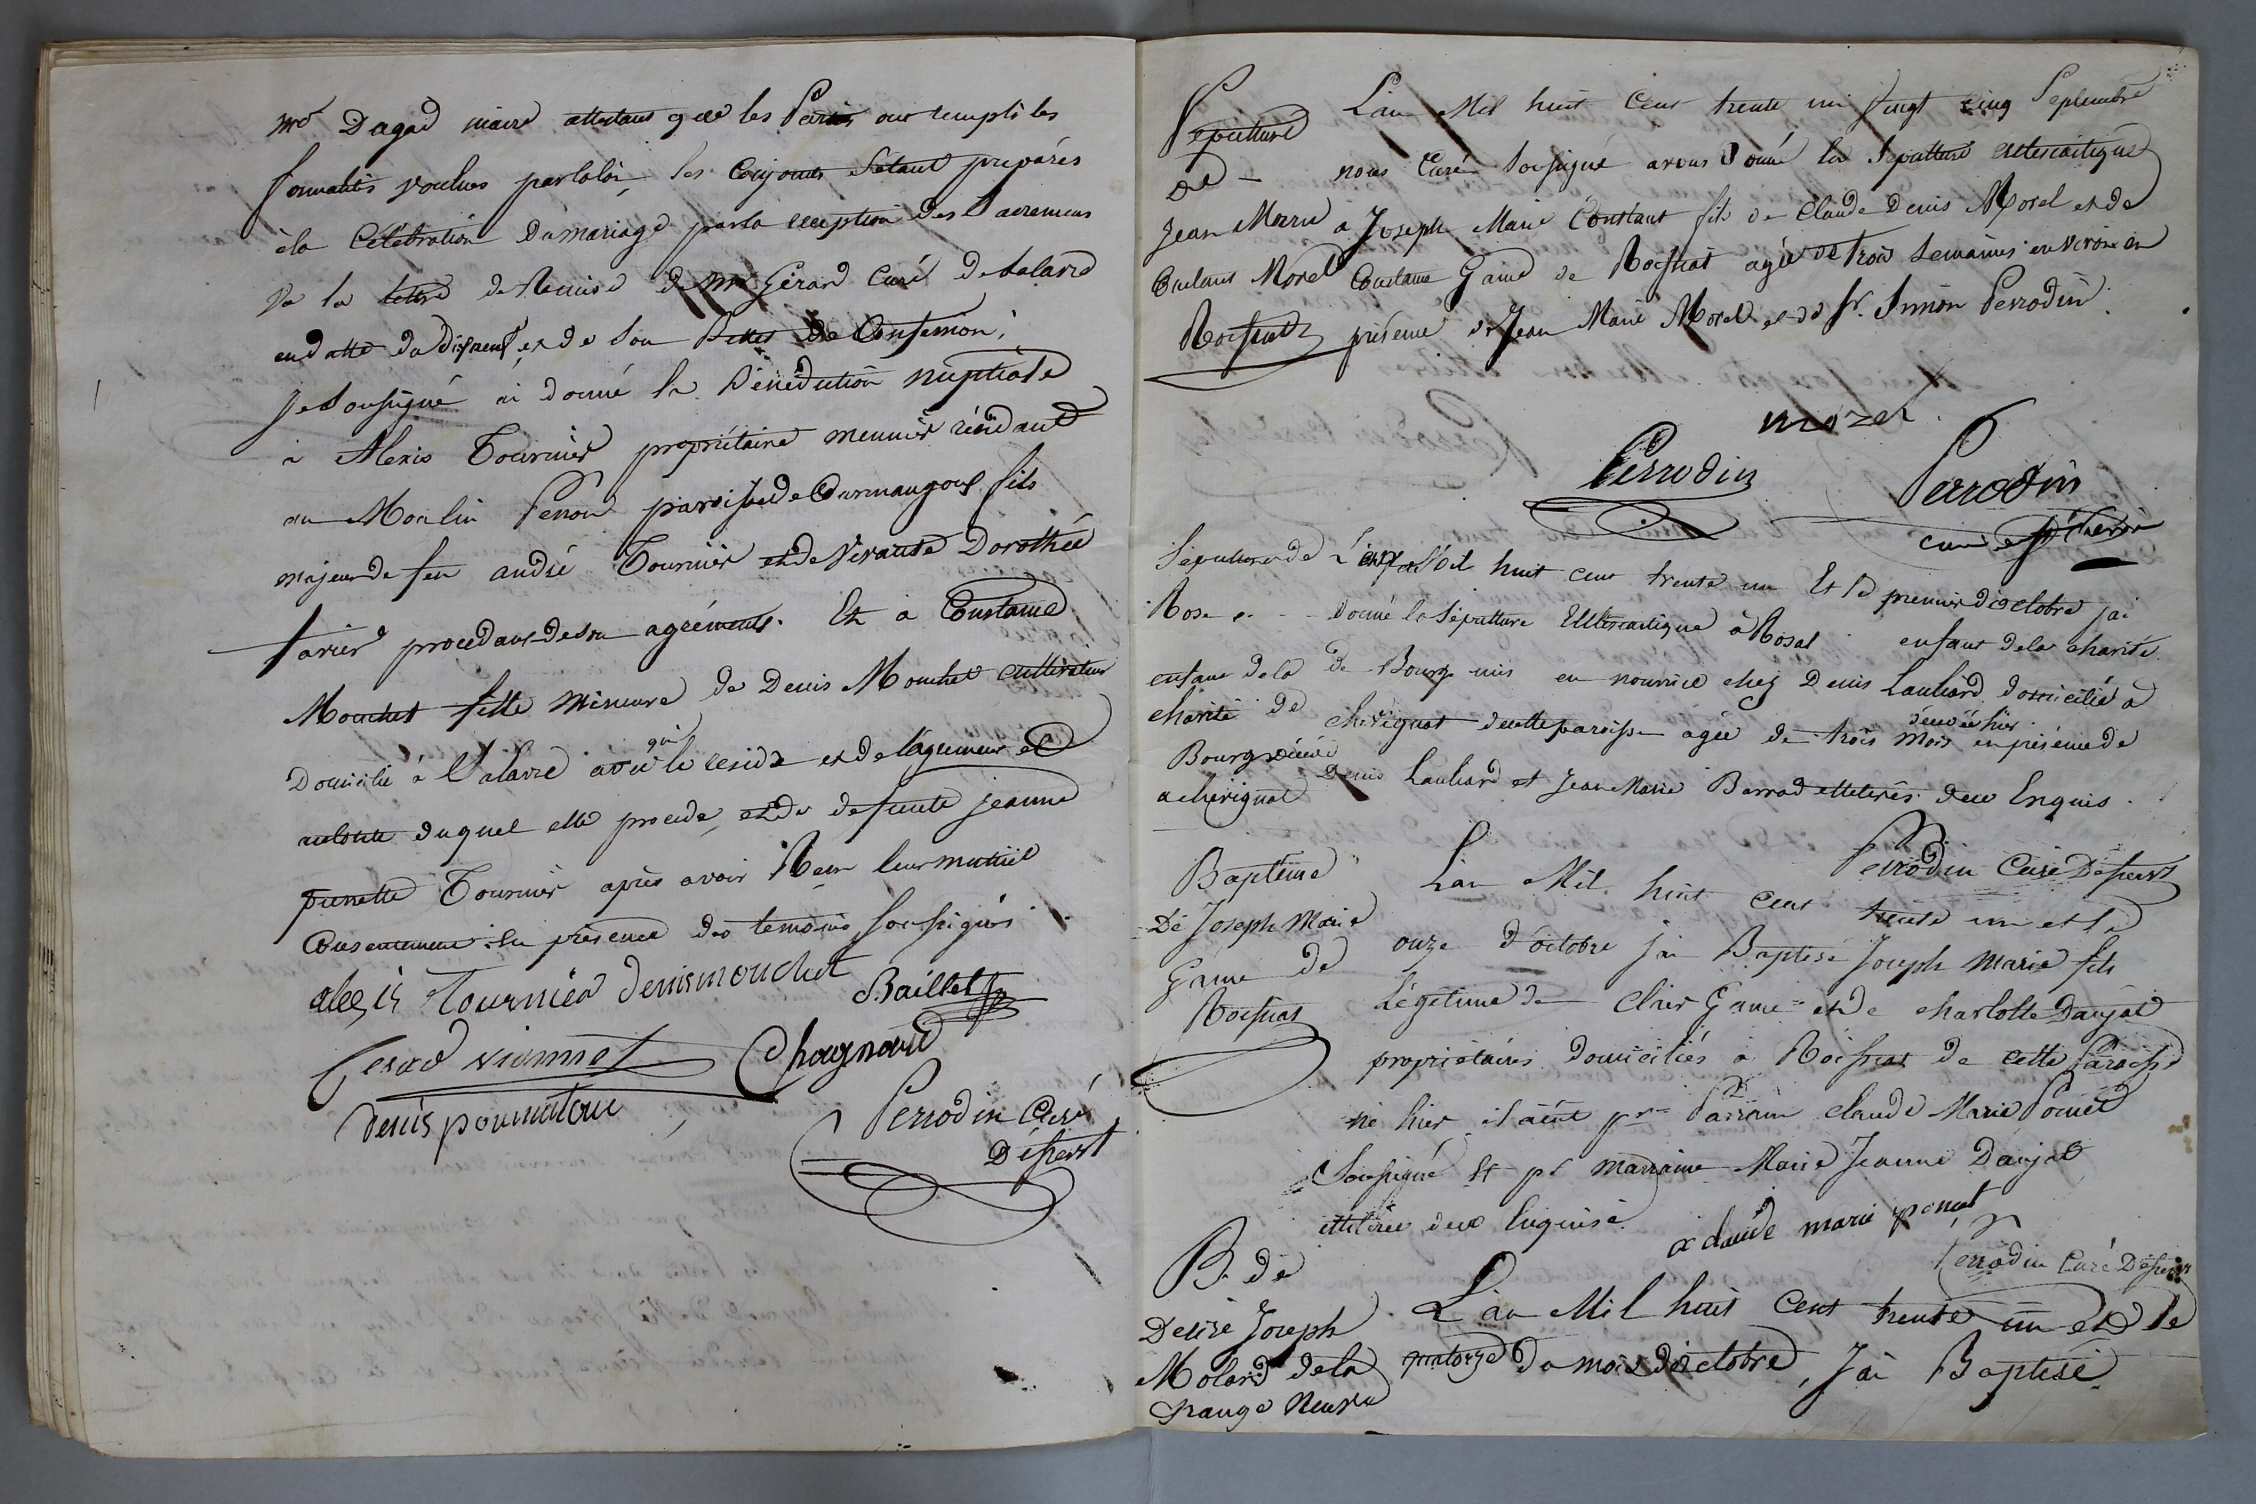 mr Dagad maire attestant que les Parties ont rempli les
formalités voulues par la loi, les conjoints s'étant préparés
à la Célébration du mariage par la reception des Sacremens
Vu la lettre de Remise de Mr Gérard Curé de Salavre
en datte du dix neuf, et de son Billet de Confession,
Je Soussigné ai donné la Bénédiction nuptiale
à Alexis Tournier propriétaire meunier résidant
au Moulin Penou paroisse de Curmangoux fils
majeur de feu andré Tournier et de Vivante Dorothée
procedant de son agrément. Et à Constance
Mouchet fille mineure de Denis Mouchet cultivateur
Domicilié à Salavre avec qui le reside et de l'agrement et
duquel elle procede, et de defunte jeanne
pierrette Tournier après avoir Reçu leur mutuel
Consentement en présence des témoins soussignés
alexis Tournier Denis mouchet
Baillet
Vionnet Chagnard
Denis pommatau
Perrodin Curé
D'épierst
Sepulture
de
Jean Marie
Constant Morel
Roissiat
L'an Mil huit Cent trente un Vingt cinq Septembre
nous Curé Soussigné avons Donné la Sepulture Ecclesiastique
à Joseph Marie Constant fils de Claude Denis Morel et de
Constance Game de Roissiat agée de trois Semaines environ en
présence de Jean Marie Morel et de Sr. Simon Perrodin.
morel
Perrodin Perrodin
curé
Sépulture de
Rose
enfant de la
charité de
Bourg décédé
a chevignat
L'an Mil huit cent trente un Et le premier d'octobre j'ai
Donné la Sépulture Ecclesiastique à Rosat enfant de la charité
de Bourg mis en nourrice chez Denis Lauliard domicilié à
chevignat de cette paroisse agée de trois mois décédée hier en présence de
Denis Lauliard et Jean Marie Barrod illiterés deux Enquis.
Perrodin Curé D'épierst
Baptême
De Joseph Marie
Game de
Roissiat
L'an Mil huit cent trente un et le
onze d'octobre j'ai Baptisé Joseph Marie fils
Légitime de Game et de charlotte Daujat
propriétaires domiciliés à Roissiat de cette Paroisse
né hier il a eut pr Parrain claude Marie Poncet
Soussigné et pr marraine Marie Jeanne Daujat
illiterée deux Enquise.
claude marie poncet
Perrodin Curé D'épierst
B. de
Desiré Joseph
Molard de la
Grange Neuve
L'an Mil huit Cent trente un et le
quatorze du mois d'octobre, j'ai Baptisé